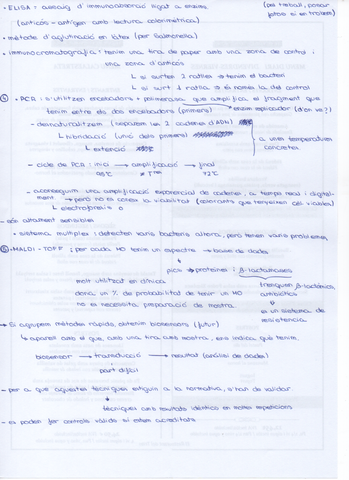 - ELISA = assaig d'immunoabsorció lligat a enzims
(per treball, posar fotos si en trobem)
(anticòs - antigen amb lectura colorimètrica)
- mètode d'aglutinació en làtex (per Salmonella)
- immunocromatografia: tenim una tira de paper amb una zona de control i una zona d'anticòs
↳ si surten 2 ratlles → tenim el bacteri
↳ si surt 1 ratlla → és només la del control
④ - PCR: s'utilitzen encebadors + polimerasa que amplifica el fragment que tenim entre els dos encebadors (primers)
enzim replicador (d'on ve?)
- desnaturalitzem (separem les 2 cadenes d'ADN)
↳ hibridació (unió dels primers)
↳ extenció
a unes temperatures concretes
- cicle de PCR: inici → amplificació → final
95ºC 72ºC
- aconseguim una amplificació exponencial de cadenes, a temps real i digitalment.
→ però no es coneix la viabilitat (colorants que tenyeixen cèl. viables)
↳ electroforesis
- són altament sensibles
- sistema multiplex: detecten varis bacteris alhora, però tenen varis problemes.
⑤ - MALDI-TOFF: per cada MO tenim un espectre → base de dades
pics → proteïnes i β-lactamases
molt utilitzat en clínica
dona un % de probabilitat de tenir un MO
no es necessita preparació de mostra
trenquen β-lactàmics antibiòtics
és un sistema de resistència
→ Si agrupem mètodes ràpids obtenim biosensors (futur)
↳ aparell amb el que, amb una tira amb mostra, ens indica què tenim.
biosensor → transducció → resultat (anàlisi de dades)
part difícil
- per a que aquestes tècniques estiguin a la normativa, s'han de validar.
→ tècniques amb resultats idèntics en moltes repeticions
- es poden fer controls vàlids si estem acreditats